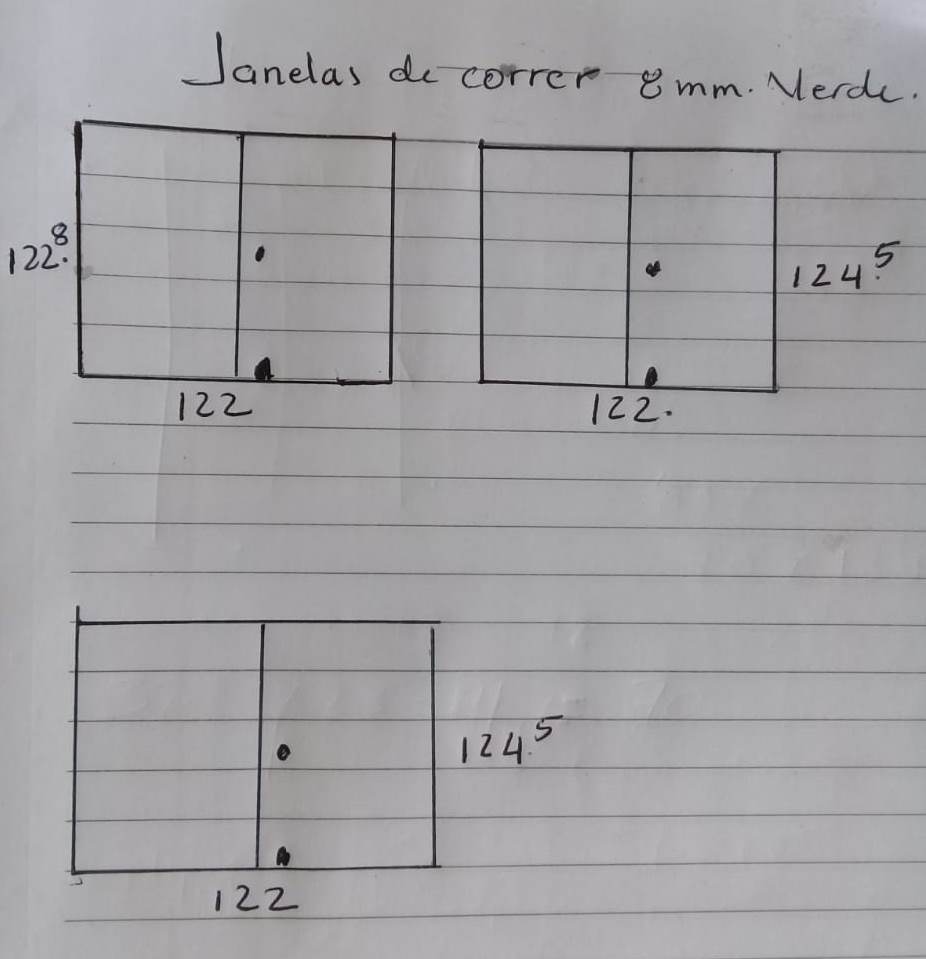 Janelas de correr 8mm. Verde.
122.8
124.5
122
122.
124.5
122